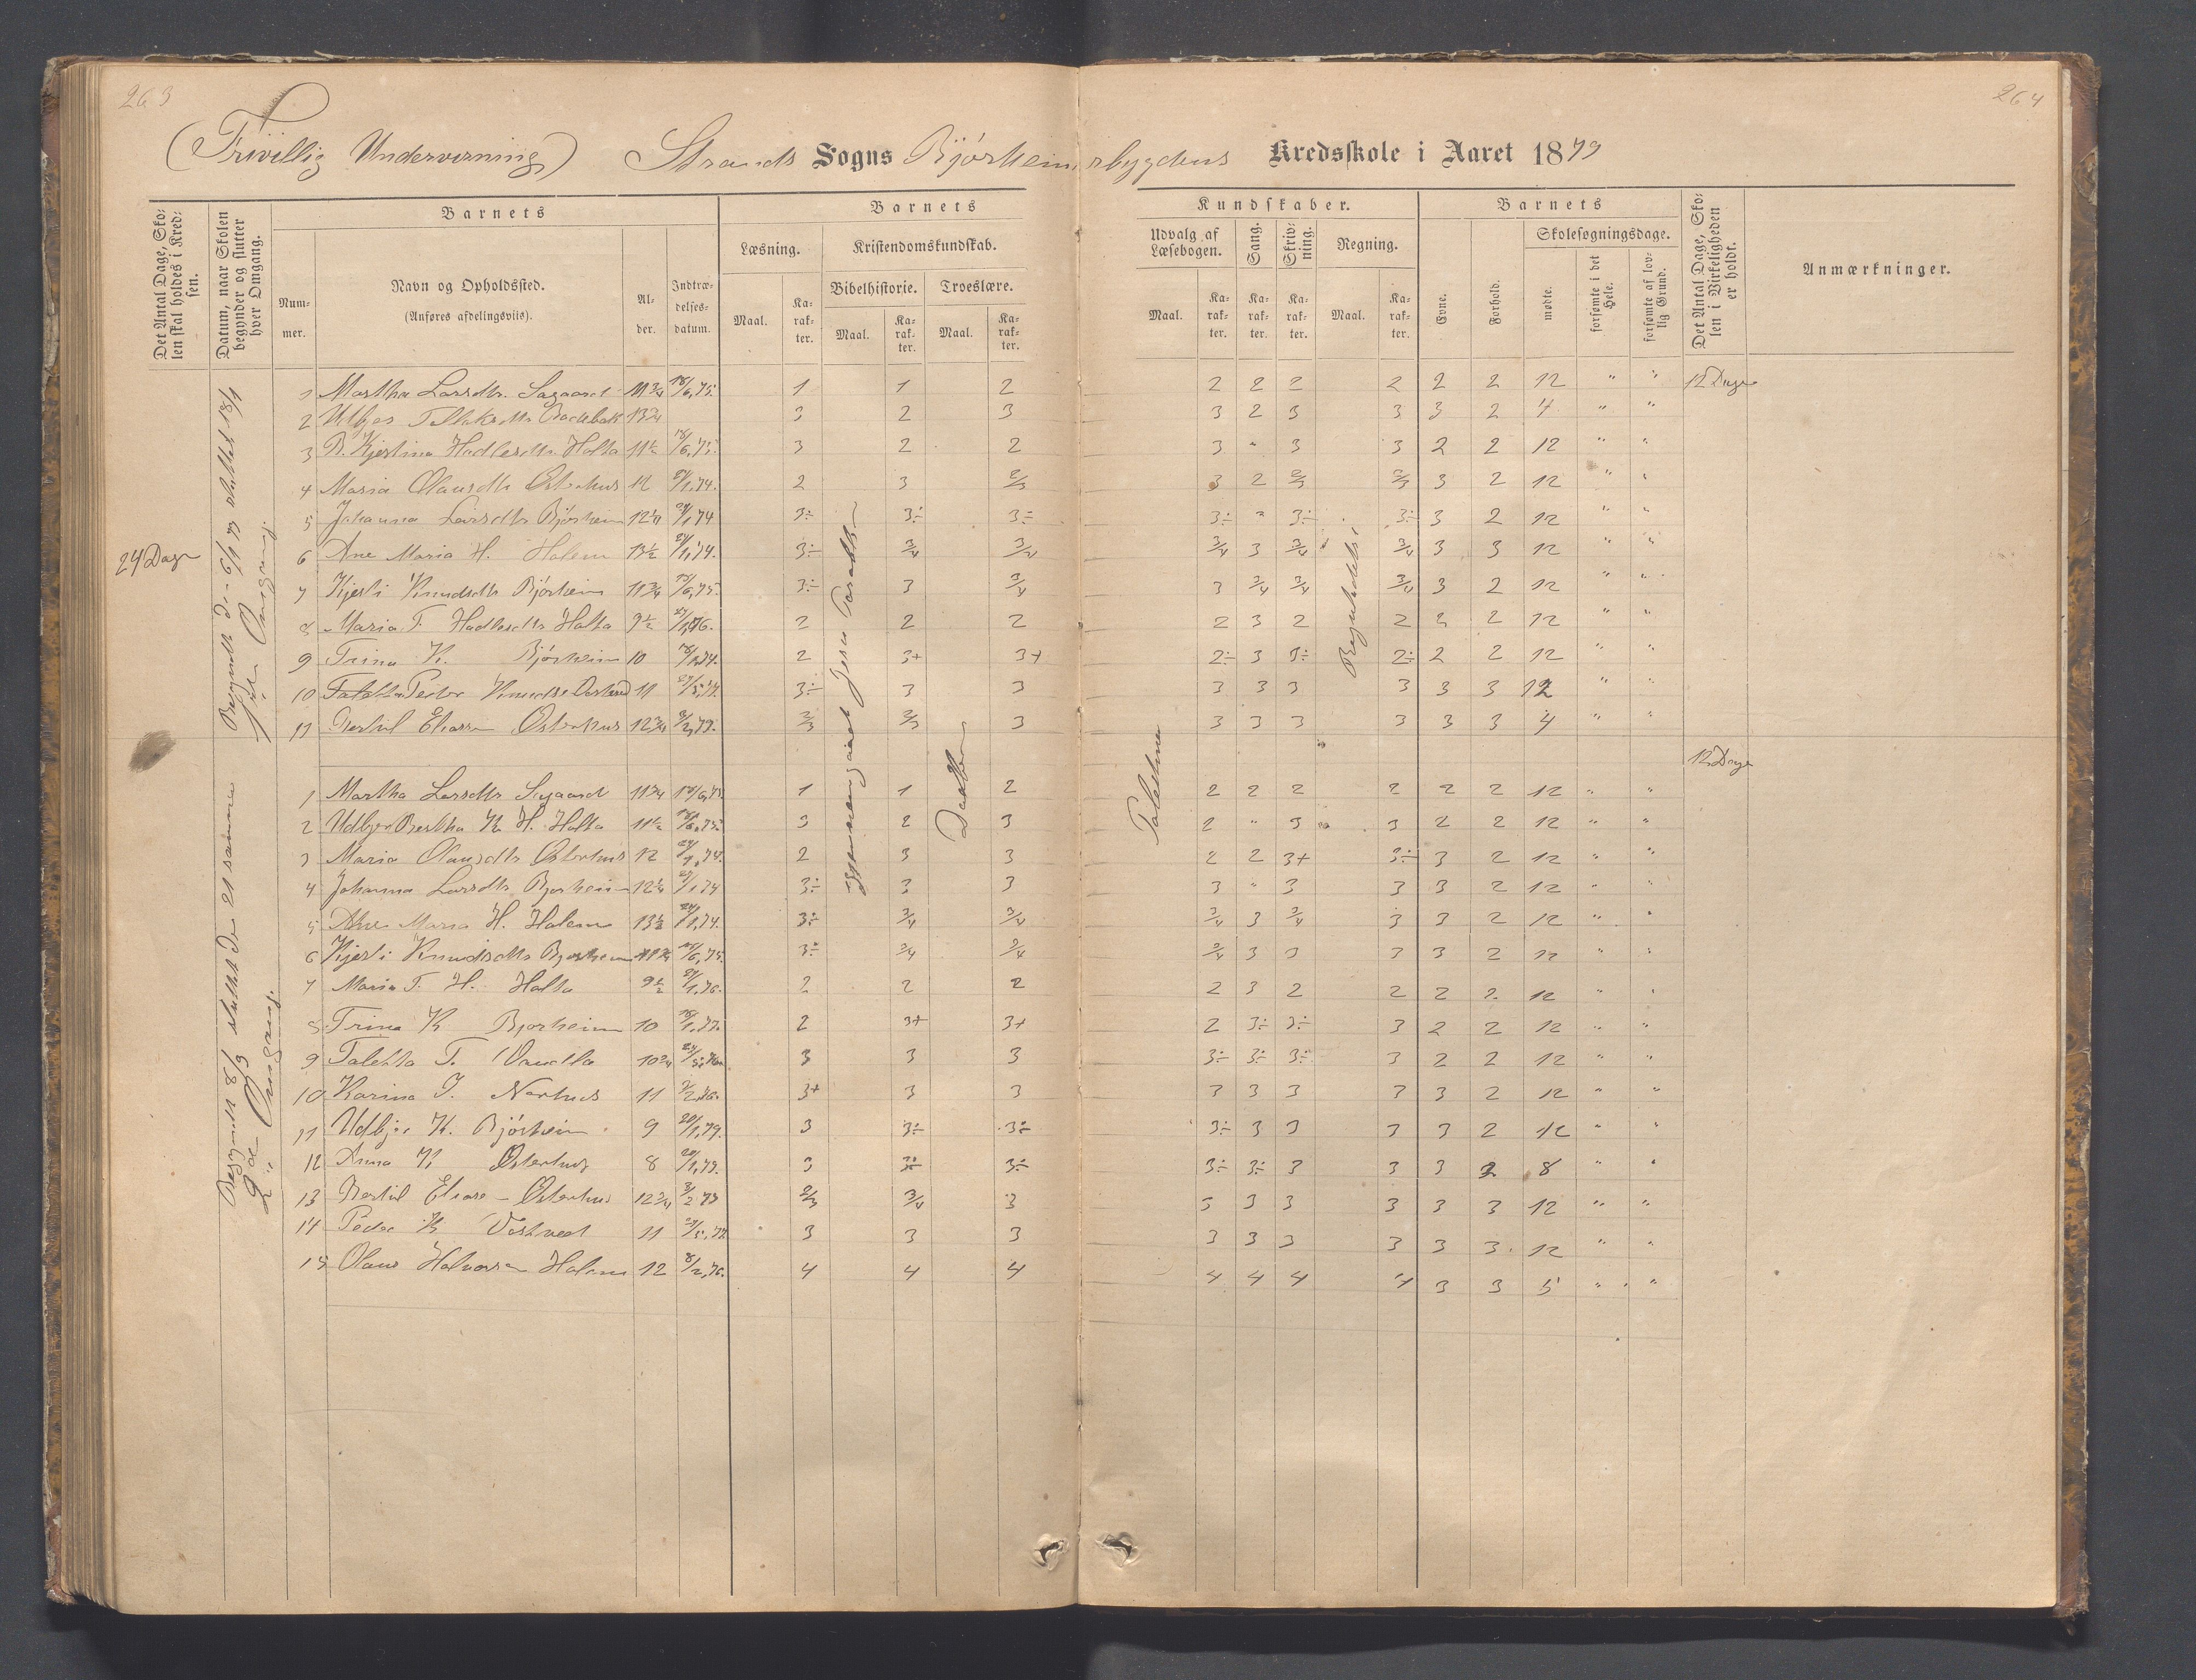 263
264
(Frivillig Undervisning) Strands Sogns Bjørheimsbygdens Kredsskole i Aaret 1879
Det Antal Dage, Skolen skal holdes i Kredsen.
Datum, naar Skolen begynder og slutter hver Omgang.
Barnets
Nummer.
Navn og Opholdssted.
(Anføres afdelingsviis).
Alder.
Indtrædelsesdatum.
Barnets
Læsning.
Maal.
Karakter.
Kristendomskundskab.
Bibelhistorie.
Maal.
Karakter.
Troeslære.
Maal.
Karakter.
Kundskaber.
Udvalg af Læsebogen.
Maal.
Karakter.
Sang.
Karakter.
Skrivning.
Karakter.
Regning.
Maal.
Karakter.
Barnets
Evne.
Forhold.
Skolesøgningsdage.
mødte.
forsømte i det Hele.
forsømte af lovlig Grund.
Det Antal Dage, Skolen i Virkeligheden er holdt.
Anmærkninger.
24 Dage
1 Martha Larsdtr. Sagaard 11 3/4 18/6,75. 1 1 2 2 2 2 2 2 2 12 " " 12 Dage
2 13 3/4 3 2 3 3 2 3 3 3 2 4 " "
3 B. Kjestina Hadlesdtr. Holta 11 1/2 18/6,75. 3 2 2 3 " 3 3 2 2 12 " "
4 Maria Olausdtr Østerhus 12 24/1,74. 2 3 2/3 3 2 2/3 2/3 3 2 12 " "
5 Johanna Larsdtr Bjørheim 12 1/4 24/1 74 3÷ 3÷ 3÷ 3÷ " 3÷ 3÷ 3 2 12 " "
6 Ane Maria H. Holem 13 1/2 24/1,74. 3÷ 3/4 3/4 3/4 3 3/4 3/4 3 3 12 " "
7 Kjesti Knudsdtr Bjørheim 11 3/4 15/6,75. 3÷ 3 3/4 3 3/4 3/4 3/4 3 2 12 " "
8 Maria T. Hadlesdtr Holta 9 1/2 2 2 2 2 3 2 2 2 2 12 " "
9 Trina K. Bjørheim 10 2 3+ 3+ 2÷ 3 3÷ 2÷ 2 2 12 " "
10 Peder Knudse 11 3÷ 3 3 3 3 3 3 3 3 12 " "
11 Bertil Eliassen Østerhus 12 3/4 3/2,73. 2/3 2/3 3 3 3 3 3 3 3 4 " "
12 Dage
1 Martha Larsdtr Sagaard 11 3/4 18/6,75. 1 1 2 2 2 2 2 2 2 12 " "
2 Udbjør Bertha K. H. Holta 11 1/2 18/6,75. 3 2 3 2 " 3 3 2 2 12 " "
3 Maria Olausdtr Østerhus 12 24/1,74. 2 3 3 2 2 3+ 3÷ 3 2 12 " "
4 Johanna Larsdtr Bjørheim 12 1/4 24/1,74 3÷ 3 3 3 " 3 3 3 2 12 " "
5 Ane Maria H. Holem 13 1/2 24/1,74. 3÷ 3/4 3/4 3/4 3 3/4 3 3 2 12 " "
6 Kjesti Knudsdtr Bjørheim 11 3/4 15/6,75. 3÷ 3/4 3/4 3/4 3 3 3 3 2 12 " "
7 Maria T. H. Holta 9 1/2 24/1,76. 2 2 2 2 3 2 2 2 2 12 " "
8 Trina K Bjørheim 10 18/1,77. 2 3+ 3+ 2 3÷ 3÷ 3 2 2 12 " "
9 Taletta T. 10 3/4 3 3 3 3÷ 3÷ 3÷ 3 2 2 12 " "
10 Karina J. 11 2/2,76. 3+ 3 3 3 3 3 3 3 2 12 " "
11 Udbjør K. Bjørheim 9 20/1,79. 3 3÷ 3÷ 3÷ 3 3 3 3 2 12 " "
12 Anna K Østerhus 8 20/1,79. 3 3÷ 3÷ 3÷ 3÷ 3 3 3 2 8 " "
13 Bertil Eliasse Østerhus 12 3/4 3/2 73 2/3 3/4 3 3 3 3 3 3 3 12 " "
14 Peder K 11 3 3 3 3 3 3 3 3 3 12 " "
15 Olaus Halvorsen Holem 12 8/2,76. 4 4 4 4 4 4 4 3 3 5 " "
Begyndt den 6/1 79 sluttet 18/1
1ste Omgang.
Begyndt 8/3 sluttet de 21 samme
2den Omgang.
Daaben
Palæstina